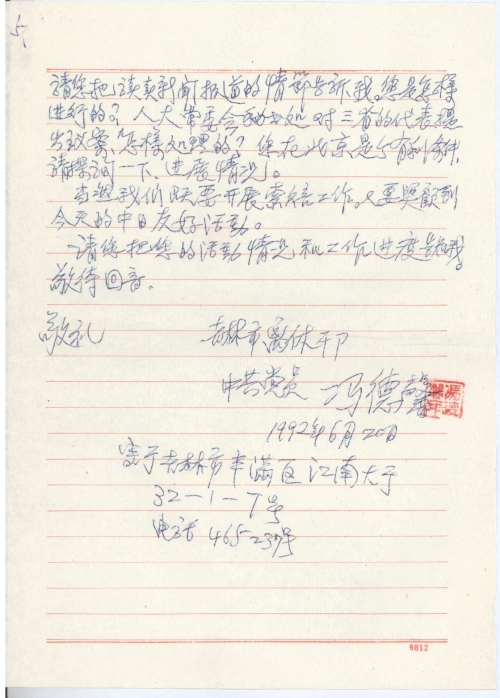 5、
請您把读卖新闻报道的情節告訴我。您是怎樣
进行的？人大常委会办公处对三省的代表提
出议案，怎樣处理的？您在北京是个有利條件，
請探詢一下、进展情况」。
当然我们既要开展索赔工作。又要照顧到
今天的中日友好活動。
請您把您的活動情况和工作进度告知我。
敬待回音。
敬礼
吉林市离休干卩
中共党员 冯德
1992年6月20日
寓于吉林市丰滿区江南大于
32-1-7号
电话 465237号
9812